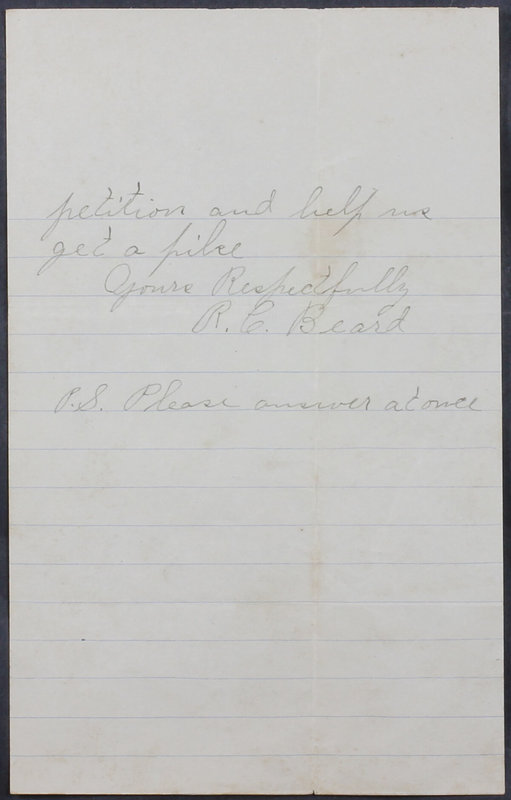 petition and help us
get a pike
Yours Respectfully
R. C. Beard
P.S. Please answer at once